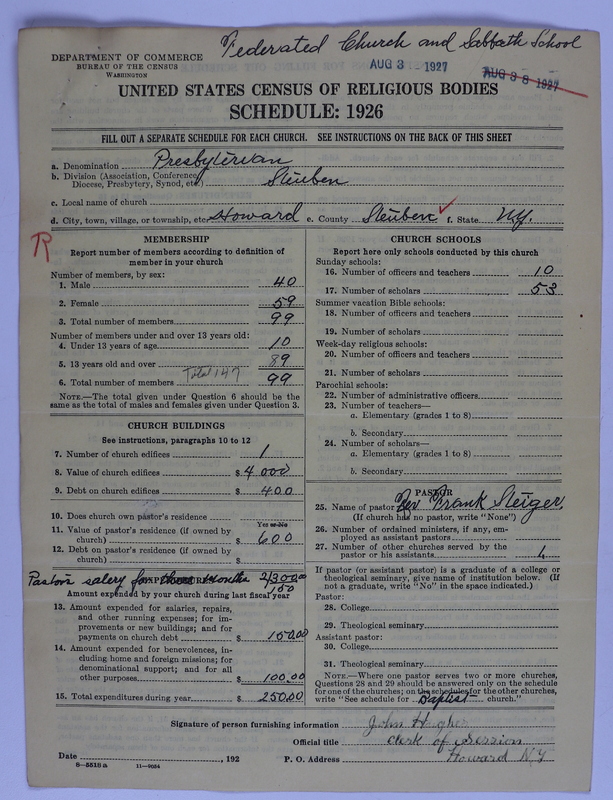 Federated Church and Sabbath School
DEPARTMENT OF COMMERCE
BUREAU OF THE CENSUS
WASHINGTON
AUG 3 - 1927
AUG 3 8 1927
UNITED STATES CENSUS OF RELIGIOUS BODIES
SCHEDULE: 1926
FILL OUT A SEPARATE SCHEDULE FOR EACH CHURCH. SEE INSTRUCTIONS ON THE BACK OF THIS SHEET
a. Denomination Presbyterian
b. Division (Association, Conference, Diocese, Presbytery, Synod, etc.) Steuben
c. Local name of church
d. City, town, village, or township, etc. Howard e. County Steuben f. State N.Y.
R
MEMBERSHIP
Report number of members according to definition of
member in your church
Number of members, by sex:
1. Male 40
2. Female 59
3. Total number of members 99
Number of members under and over 13 years old:
4. Under 13 years of age 10
5. 13 years old and over 89
Total 147
6. Total number of members 99
NOTE.—The total given under Question 6 should be
same as the total of males and females given under Question 3.
CHURCH BUILDINGS
See instructions, paragraphs 10 to 12
7. Number of church edifices 1
8. Value of church edifices $ 4000
9. Debt on church edifices $ 400
10. Does church own pastor's residence
Yes or No
11. Value of pastor's residence (if owned by
church) $ 600
12. Debt on pastor's residence (if owned by
church) $
Pastor's salery for months
Amount expended by your church during last fiscal year
150
13. Amount expended for salaries, repairs,
and other running expenses; for im-
provements or new buildings; and for
payments on church debt $ 150.00
14. Amount expended for benevolences, in-
cluding home and foreign missions; for
denominational support; and for all
other purposes $ 100.00
15. Total expenditures during year $ 250.00
CHURCH SCHOOLS
Report here only schools conducted by this church
Sunday schools:
16. Number of officers and teachers 10
17. Number of scholars 53
Summer vacation Bible schools:
18. Number of officers and teachers
19. Number of scholars
Week-day religious schools:
20. Number of officers and teachers
21. Number of scholars
Parochial schools:
22. Number of administrative officers
23. Number of teachers—
a. Elementary (grades 1 to 8)
b. Secondary
24. Number of scholars—
a. Elementary (grades 1 to 8)
b. Secondary
PASTOR
25. Name of pastor Rev Frank Steiger
(If church has no pastor, write "None")
26. Number of ordained ministers, if any, em-
ployed as assistant pastors
27. Number of other churches served by the
pastor or his assistants
If pastor (or assistant pastor) is a graduate of a college or
theological seminary, give name of institution below. (If
not a graduate, write "No" in the space indicated.)
Pastor:
28. College
29. Theological seminary
Assistant pastor:
30. College
31. Theological seminary
NOTE.—Where one pastor serves two or more churches,
Questions 28 and 29 should be answered only on the schedule
for one of the churches; on the schedules for the other churches,
write "See schedule for Baptist church."
Signature of person furnishing information John Hughes
Official title Clerk of Session
Date , 192 P. O. Address Howard N.Y.
8—5518 a 11—9034